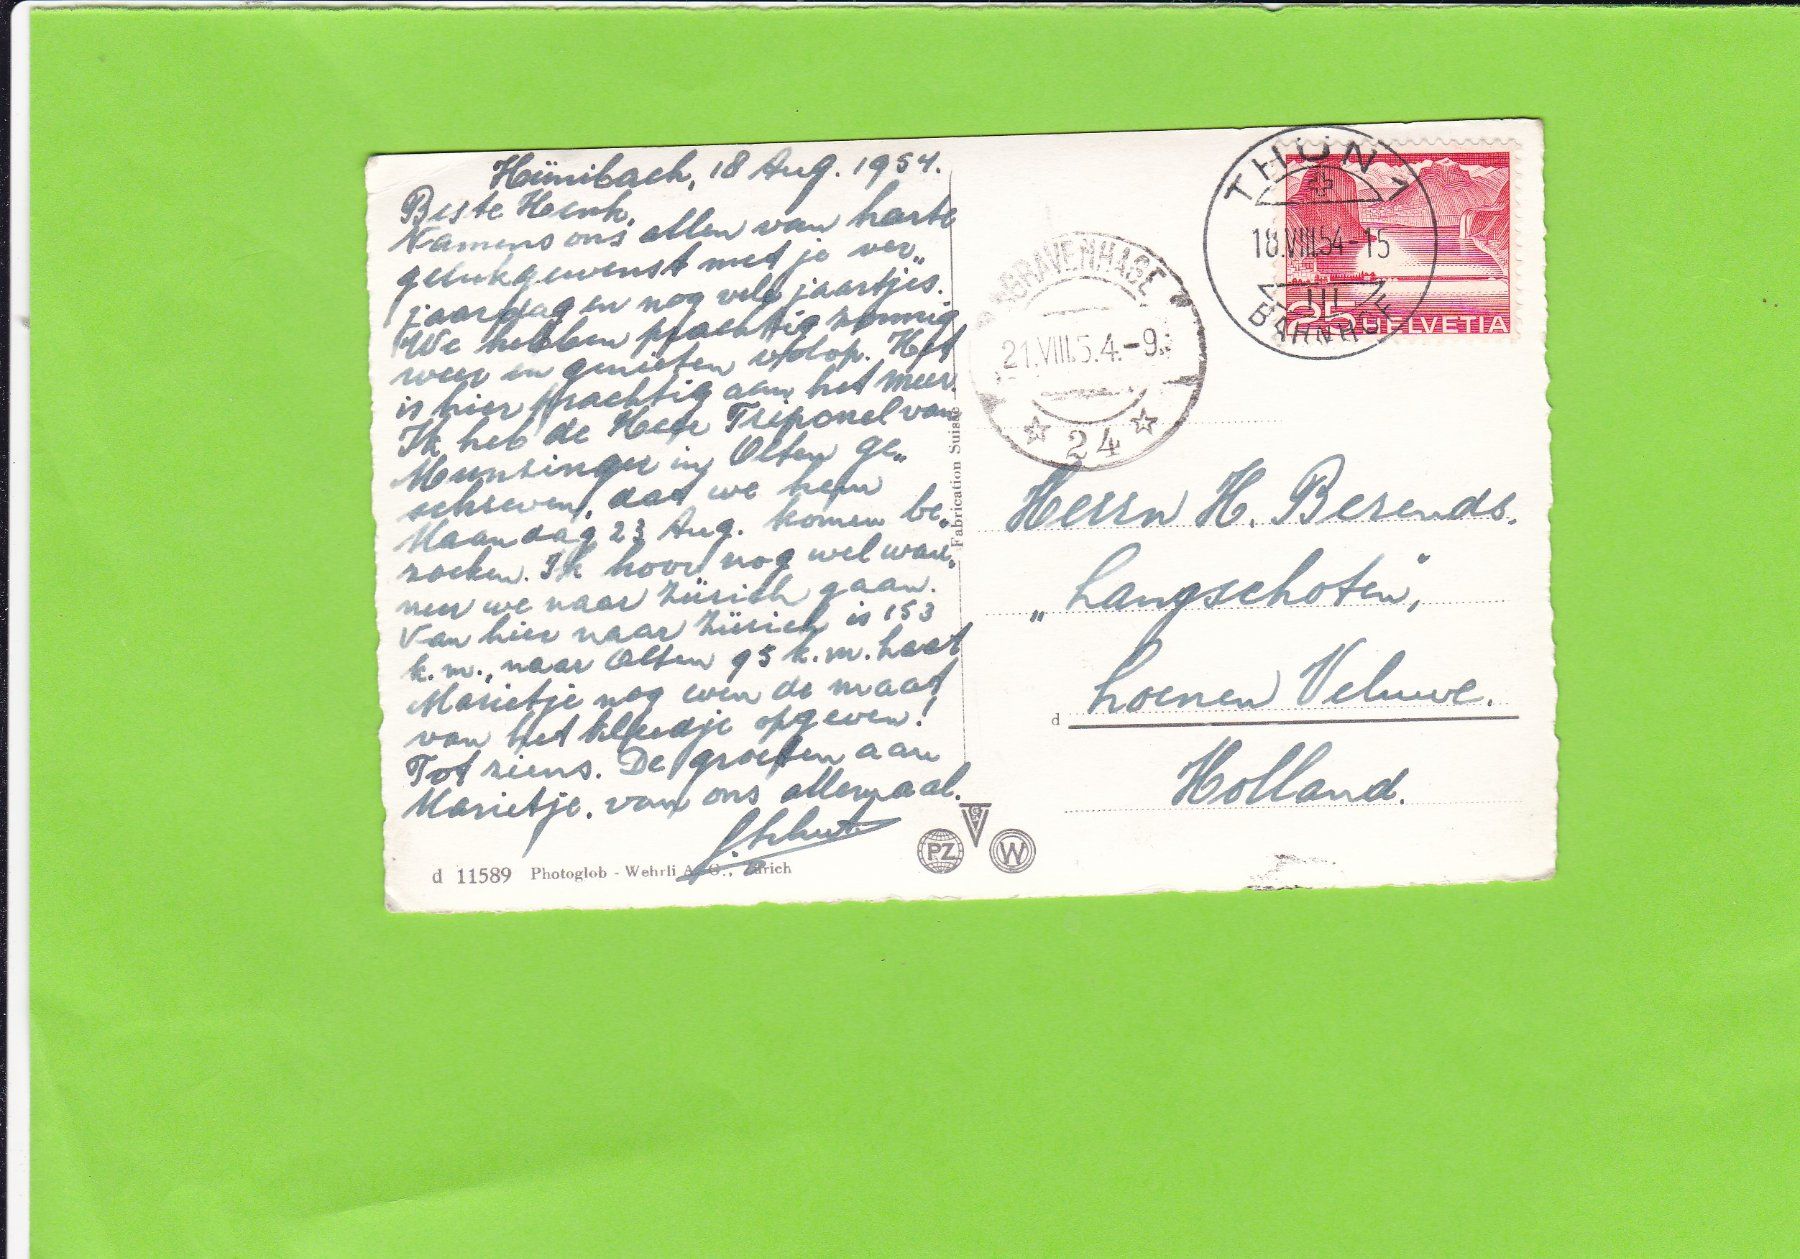 Hünibach, 18 Aug. 1954.
Beste Henk,
Namens ons allen van harte
gelukgewenst met je ver„
jaardag en nog vele jaartjes.
We hebben prachtig zonnig
weer en genieten volop. Het
is hier prachtig aan het meer.
Ik heb de Heer Triponel van
Munzinger in Olten ge„
schreven, dat we hem
Maandag 23 Aug. komen be„
zoeken. Ik hoor nog wel wan„
neer we naar Zürich gaan.
Van hier naar Zürich is 153
k.m., naar Olten 95 k.m. Laat
Marietje nog even de maat
van het kleedje opgeven!
Tot ziens. De groeten aan
Marietje. van ons allemaal.
d 11589 Photoglob - Wehrli A. G., Zürich
Fabrication Suisse
PZ
W
'SGRAVENHAGE
21.VIII.5.4.-9.
24
THUN 1
18.VIII.54-15
BAHNHOF
25 HELVETIA
Herrn H. Berends.
„Langschoten",
Loenen Veluwe.
d
Holland.